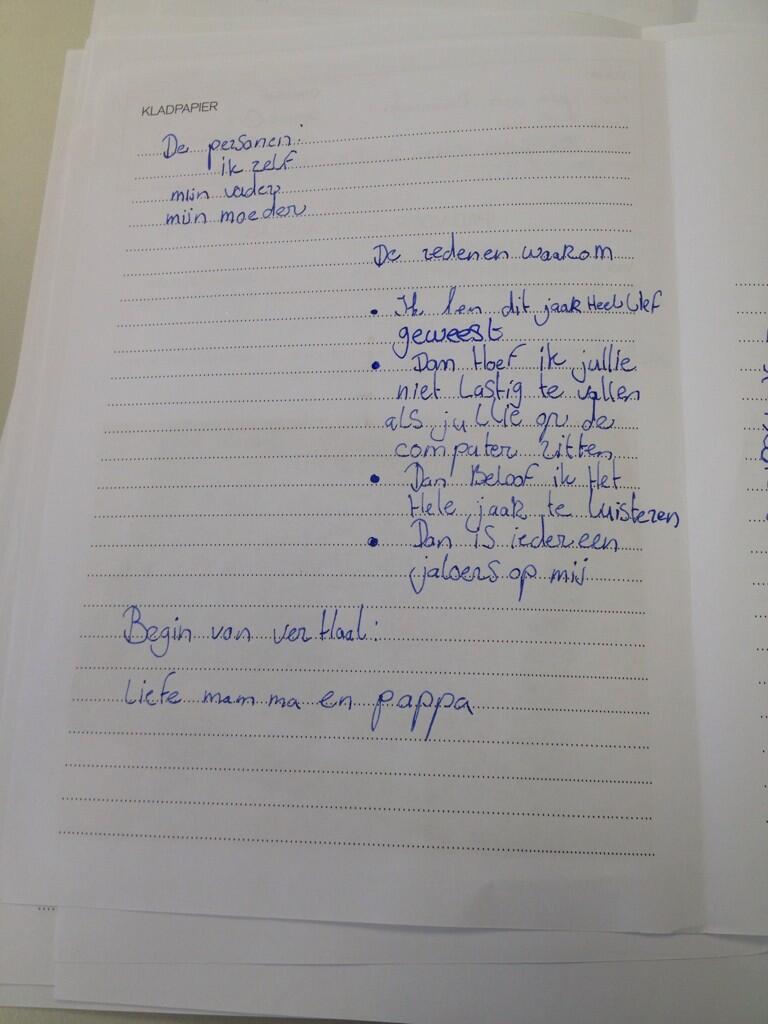 KLADPAPIER
De personen:
ik zelf
mijn vader
mijn moeder
De redenen waarom
• Ik ben dit jaar Heel lief
geweest
• Dan Hoef ik jullie
niet Lastig te vallen
als juLLie op de
computer zitten
• Dan Beloof ik Het
Hele jaar te Luisteren
• Dan is iedereen
jaloers op mij
Begin van verHaal:
Liefe mamma en pappa